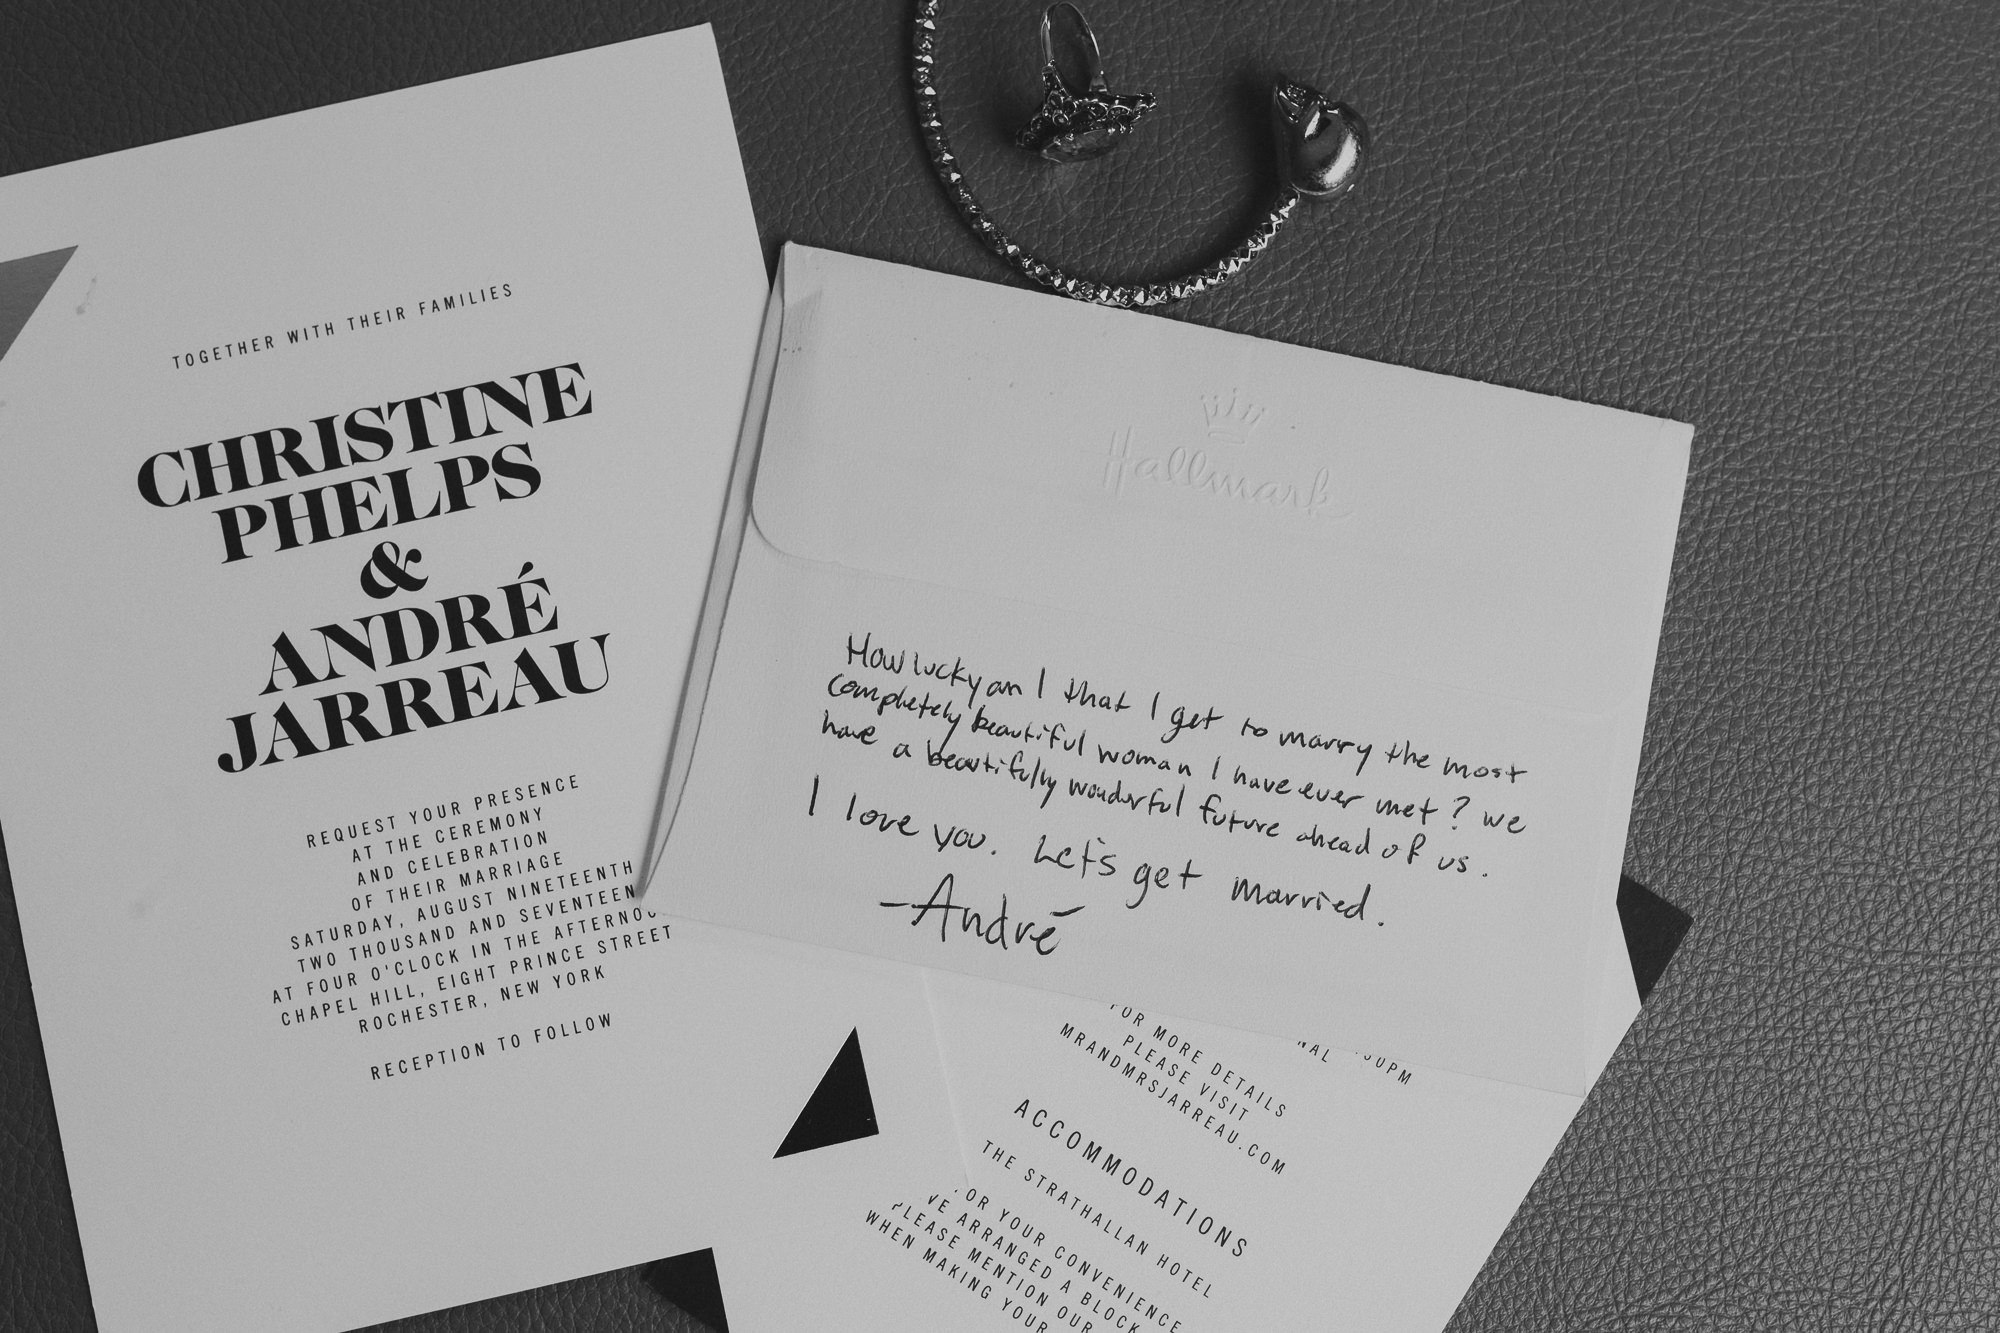 TOGETHER WITH THEIR FAMILIES
CHRISTINE
PHELPS
&
ANDRÉ
JARREAU
REQUEST YOUR PRESENCE
AT THE CEREMONY
AND CELEBRATION
OF THEIR MARRIAGE
SATURDAY, AUGUST NINETEENTH
TWO THOUSAND AND SEVENTEEN
AT FOUR O'CLOCK IN THE AFTERNOO
CHAPEL HILL, EIGHT PRINCE STREET
ROCHESTER, NEW YORK
RECEPTION TO FOLLOW
Hallmark
How lucky am I that I get to marry the most
completely beautiful woman I have ever met? We
have a beautifully wonderful future ahead of us.
I love you. Let's get married.
-André
FOR MORE DETAILS
PLEASE VISIT
MRANDMRSJARREAU.COM
ACCOMMODATIONS
THE STRATHALLAN HOTEL
FOR YOUR CONVENIENCE
WE ARRANGED A BLOCK
PLEASE MENTION OUR
WHEN MAKING YOUR